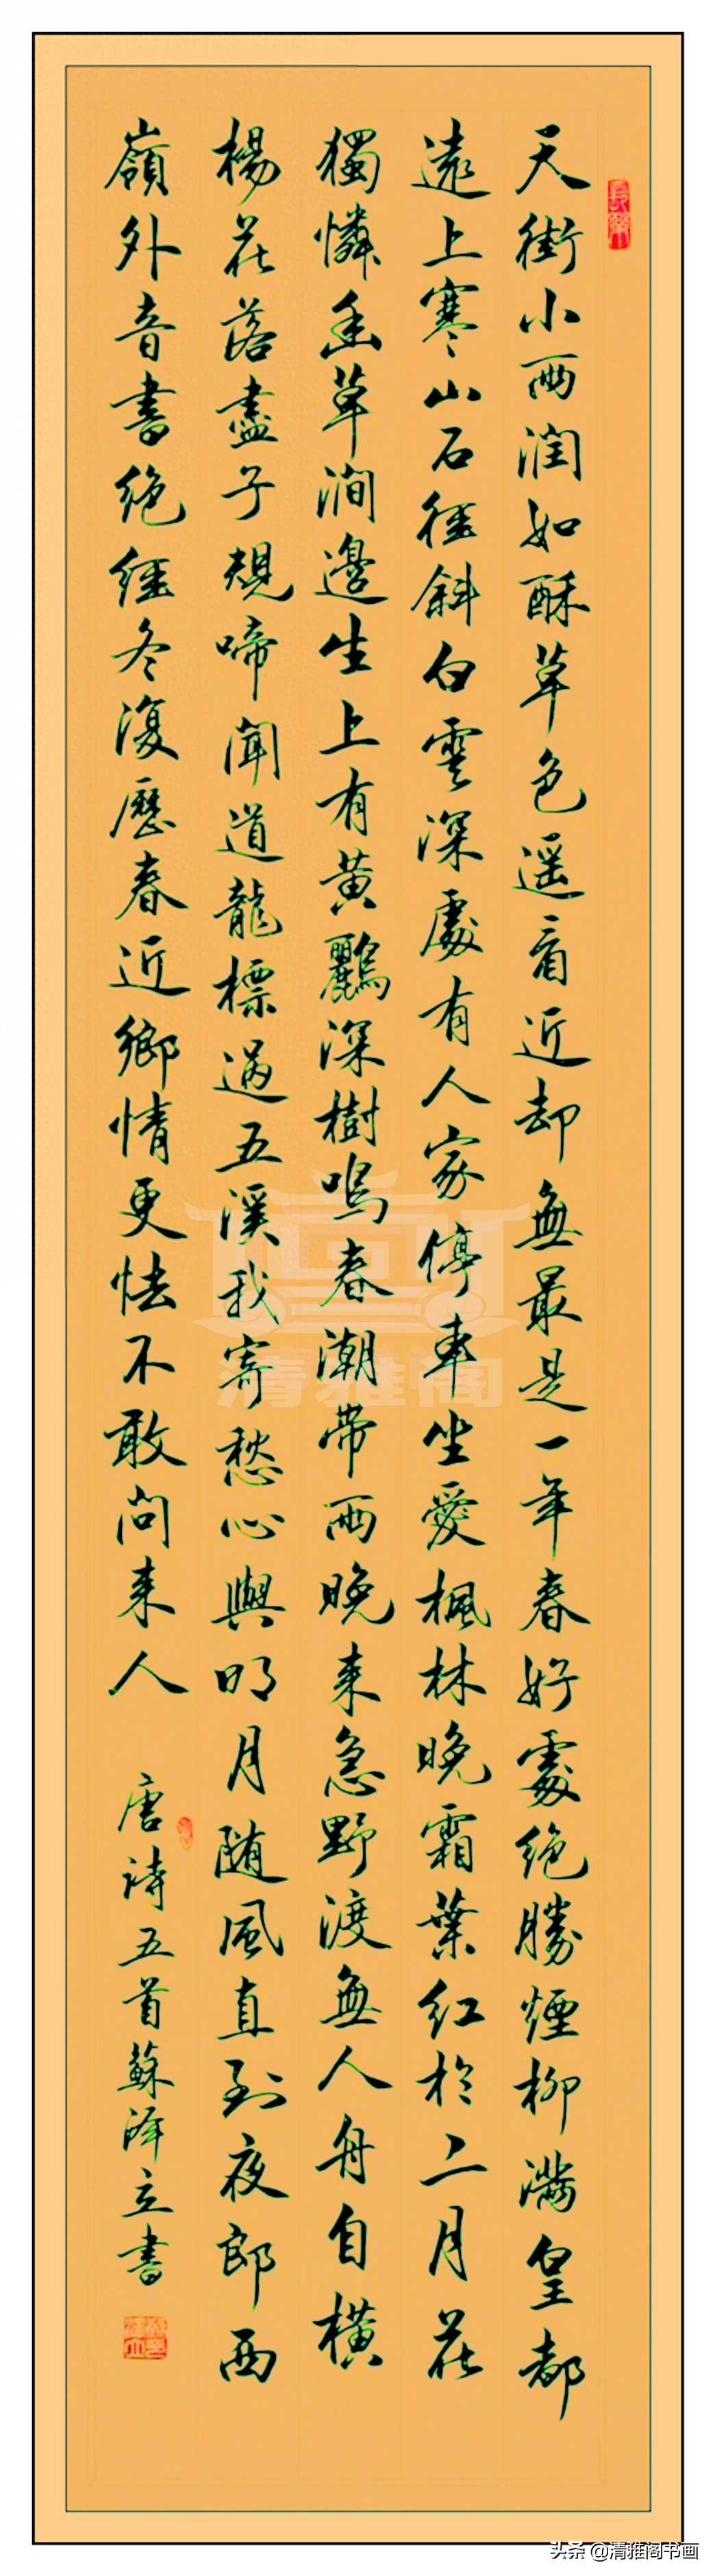 天街小雨润如酥草色遥看近却無最是一年春好處絶勝煙柳满皇都
遠上寒山石徑斜白雲深處有人家停車坐愛楓林晚霜葉红於二月花
獨憐幽草澗邊生上有黄鸝深樹鳴春潮帶雨晚来急野渡無人舟自横
楊花落盡子規啼聞道龍標過五溪我寄愁心與明月随風直到夜郎西
嶺外音書絶經冬復歷春近鄉情更怯不敢問来人
唐詩五首蘇澤立書
清雅阁
头条 @清雅阁书画